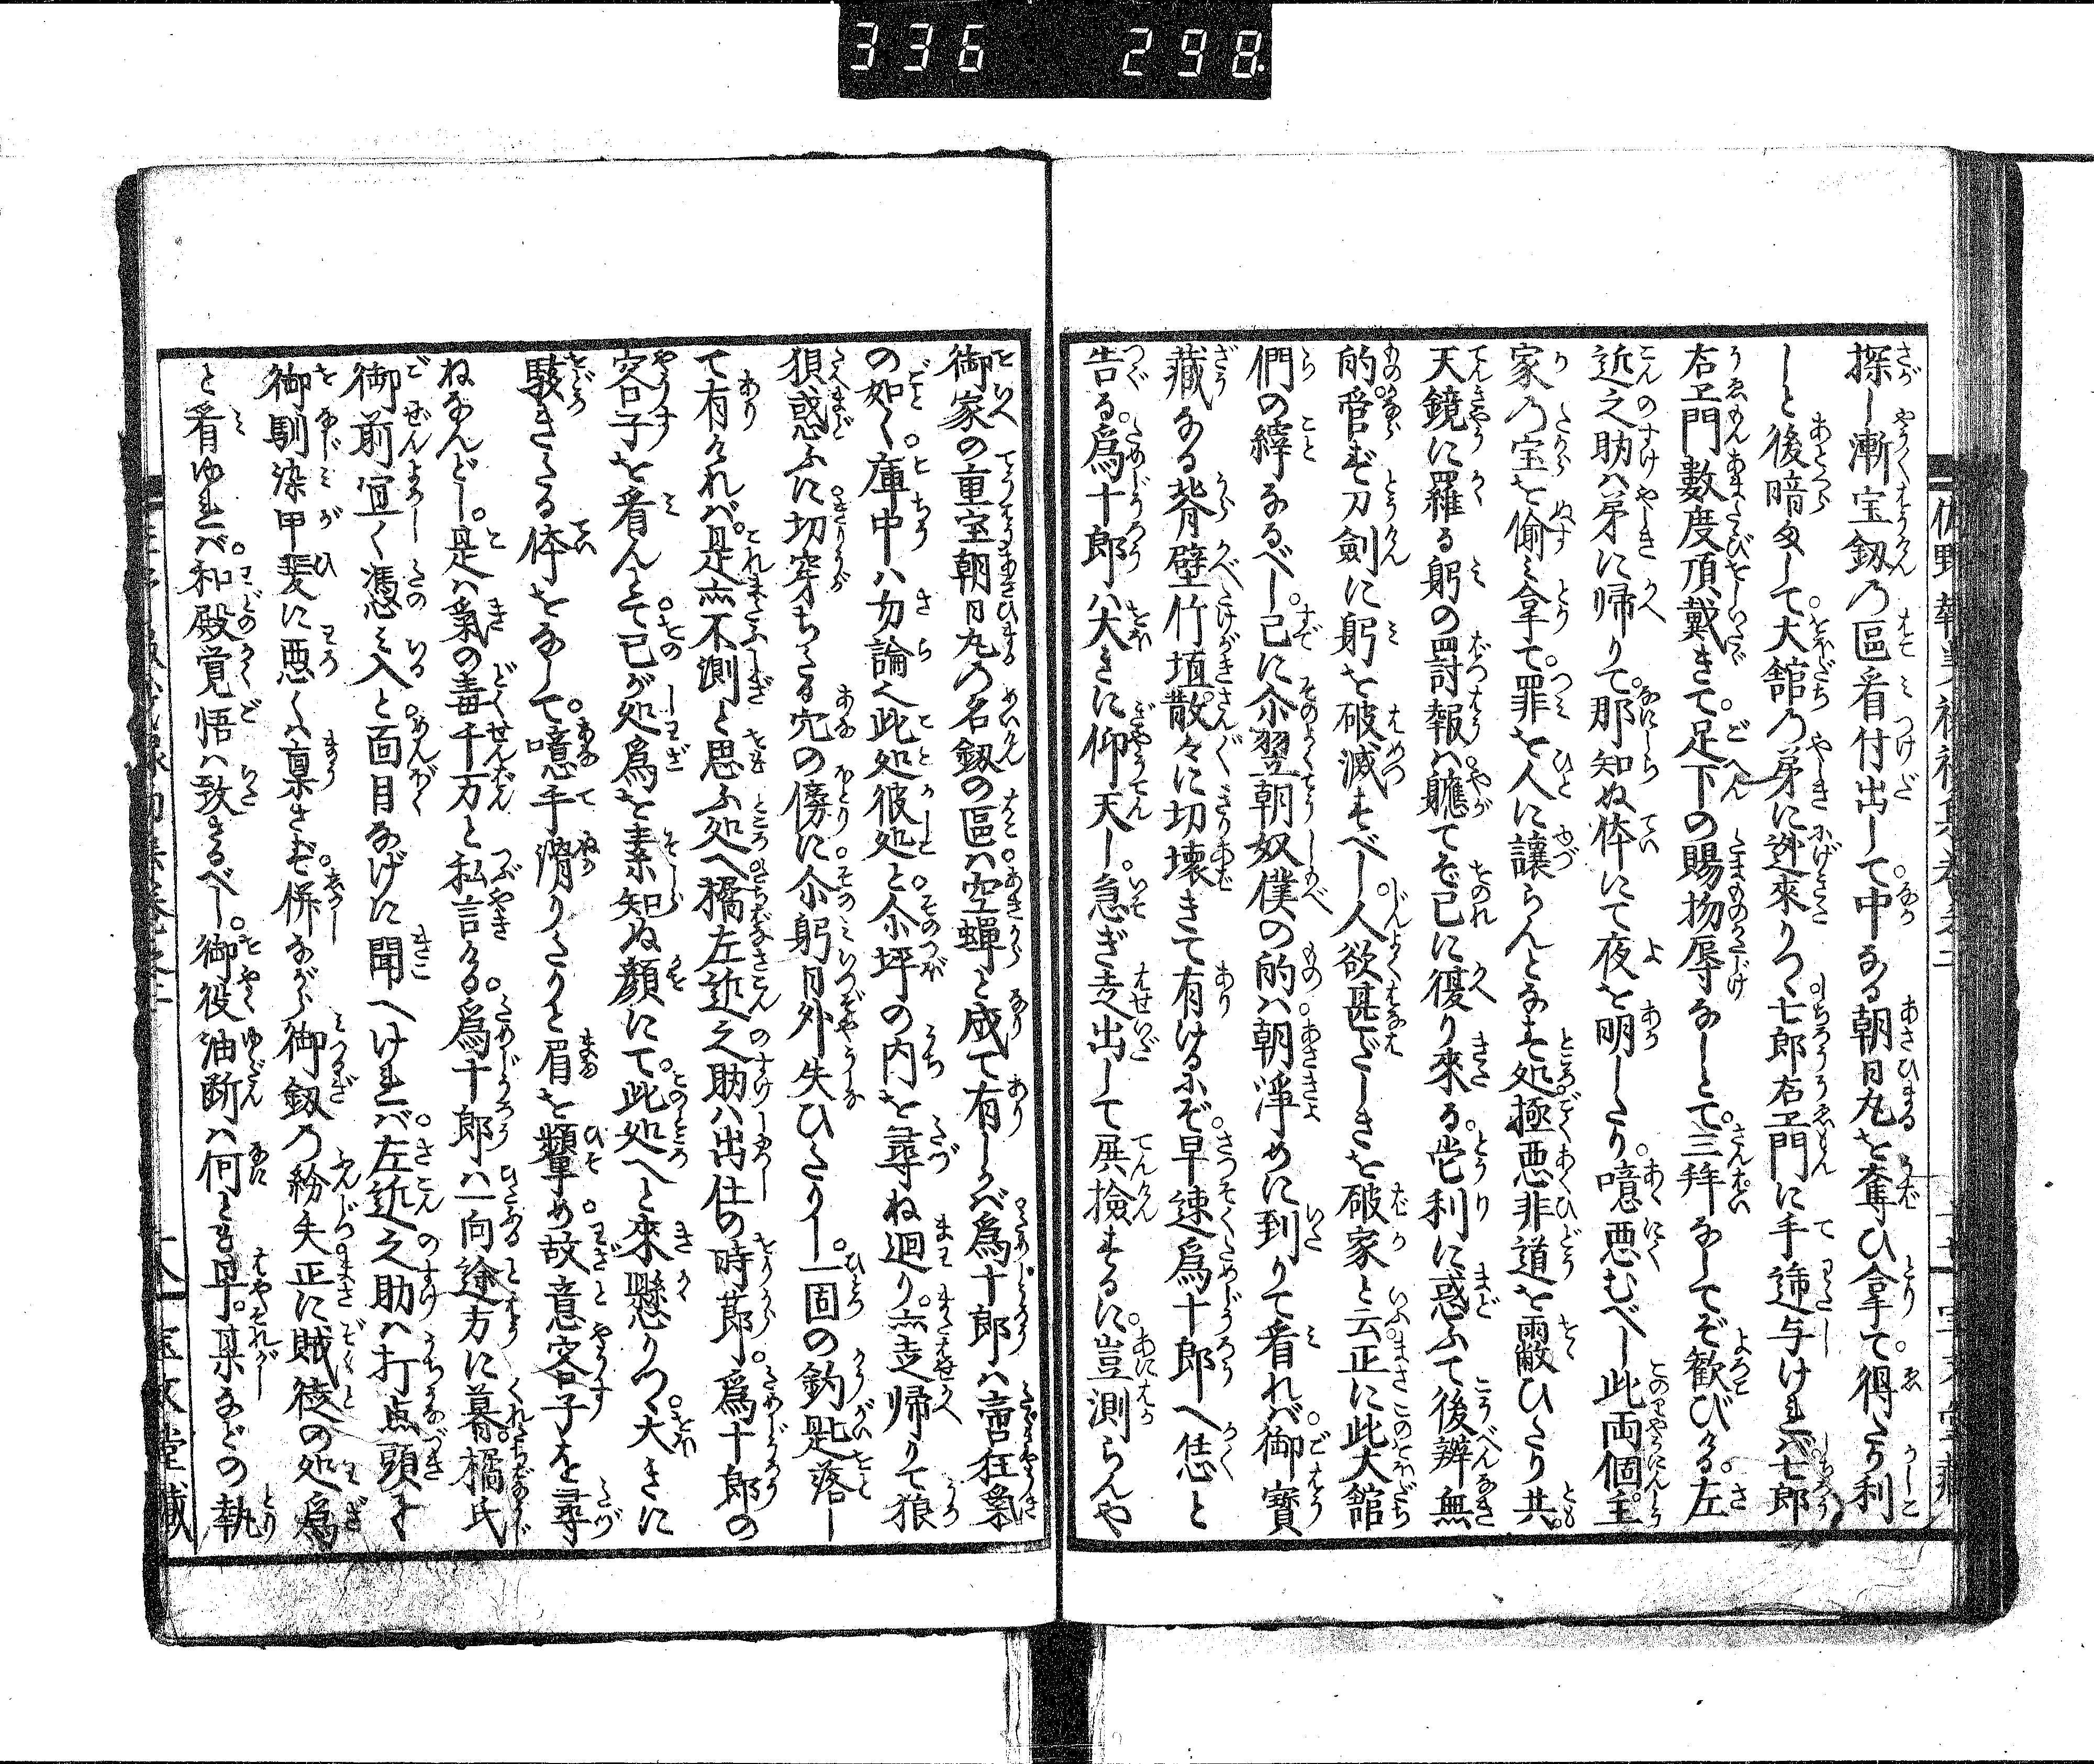 336 298
探し漸宝釼乃區看付出して中なる朝日丸を奪ひ拿て得たり利
しと後暗くして大舘乃弟に迯來りつゝ七郎右エ門に手逓与けれバ七郎
右エ門數度頂戴きて足下の賜物辱なしとて三拜なしてぞ歓びける左
近之助ハ弟に帰りて那知ぬ体にて夜を明したり噫悪むべし此両個主
家乃宝を偷ミ拿て罪を人に譲らんとなす処極悪非道を霸ひたり共
天鏡に羅る躬の罸報ハ軈てぞ己に復り來る些利に惑ふて後辨無
的管ず刀劍に躬を破滅すべし人欲甚だしきを破家と云正に此大舘
們の縡なるべし已に尒翌朝奴僕の的ハ朝浄めに到りて看れバ御寳
藏なる背壁竹埴散々に切壊きて有けるにぞ早速爲十郎へ恁と
告る爲十郎ハ大きに仰天し急ぎ走出して展撿するに豈測らんや
御家の重宝朝日丸乃名釼の區ハ空蟬と成て有しかバ爲十郎ハ啻狂氣
の如く庫中ハ勿論此処彼処と尒坪の内を尋ね迴り亦走帰りて狼
狽惑ふに切穿ちたる穴の傍に尒躬日外失ひたりし一固の釣匙落し
て有けれバ是亦不測と思ふ処へ橘左近之助ハ出仕の時莭爲十郎の
容子を看んとて己が処爲を素知ぬ顔にて此処へと來懸りつゝ大きに
駭きたる体をなして噫手滑りたりと眉を顰め故意容子を尋
ねなんどし是ハ氣の毒千万と私言ける爲十郎ハ一向途方に暮橘氏
御前宜く憑ミ入と面目なげに聞へけれバ左近之助ハ打点頭き
御馴染甲斐に悪くハ稟さず併ながら御釼乃紛失正に賊徒の処爲
と看ゆれバ和殿覚悟ハ致さるべし御役油断ハ何とも早某などの執